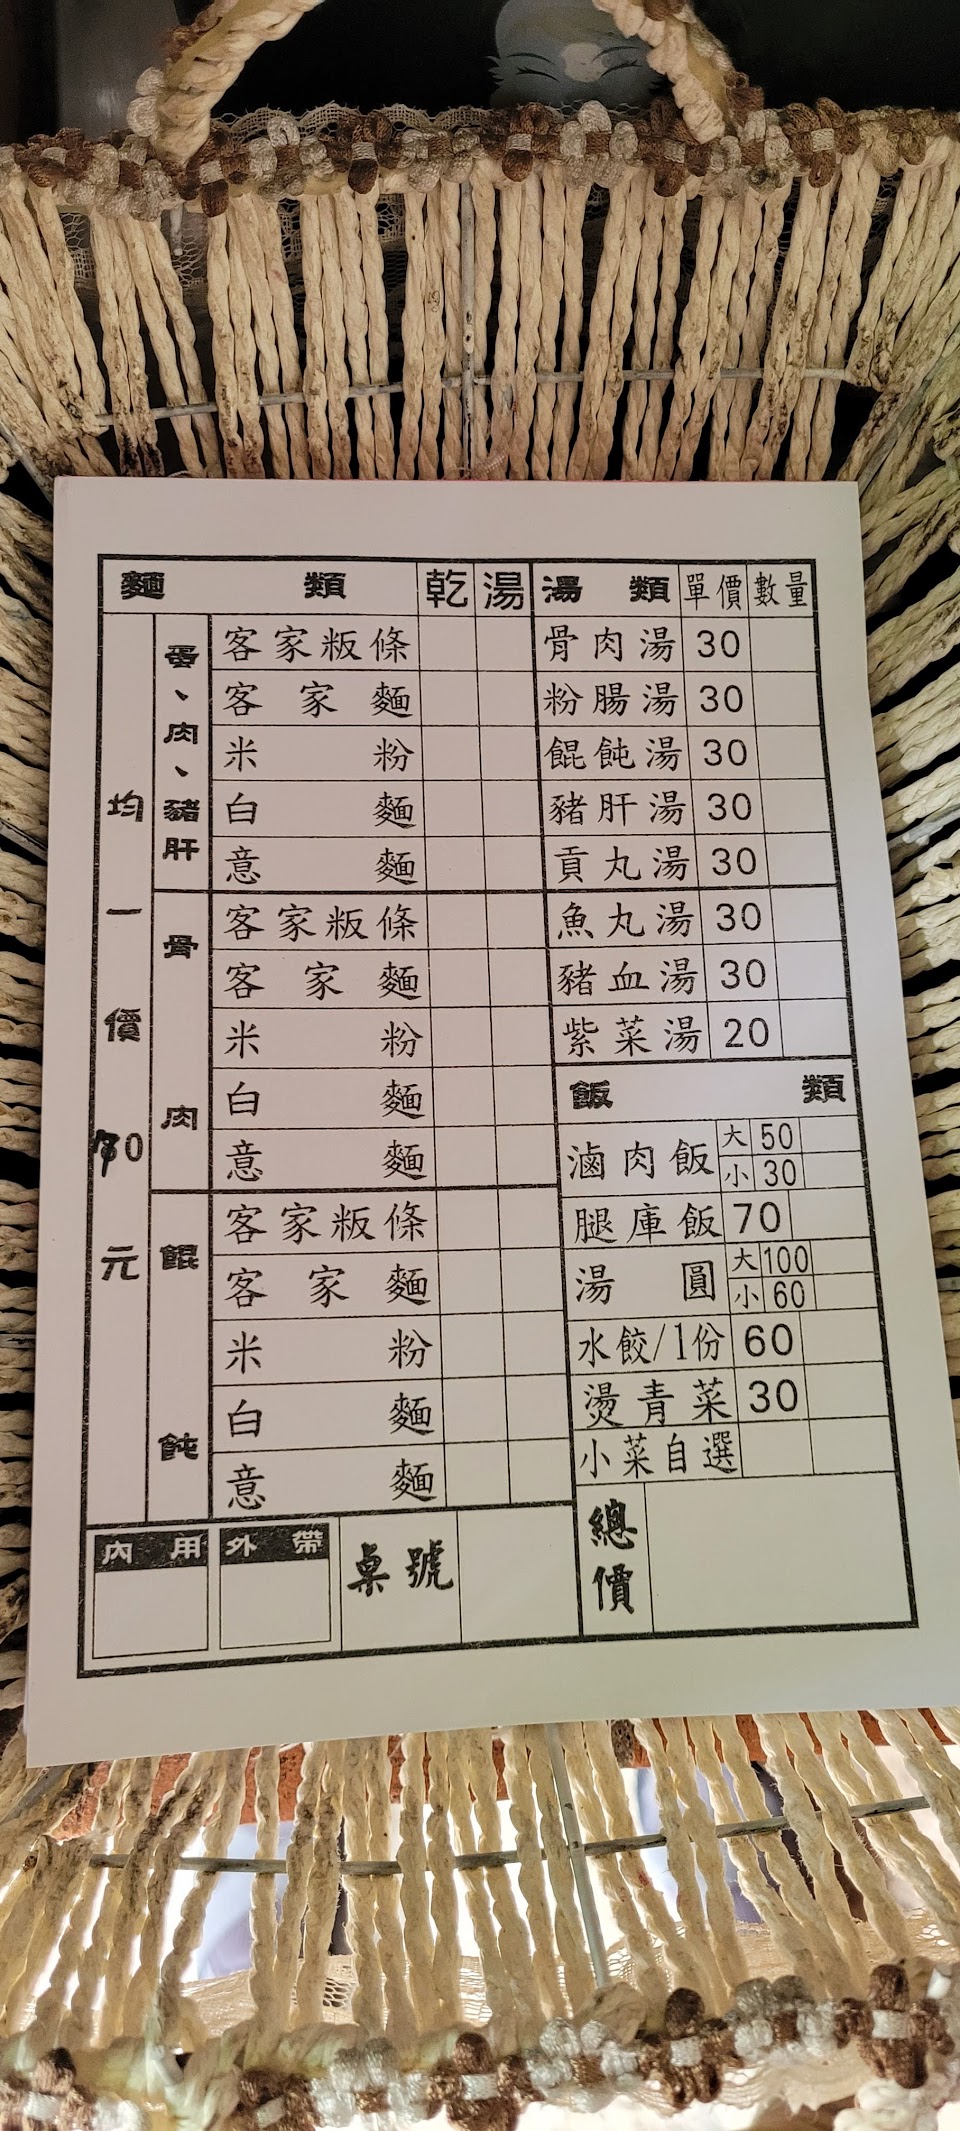 麵類 乾 湯
均一價70元
蛋、肉、豬肝
客家粄條
客家麵
米粉
白麵
意麵
骨肉
客家粄條
客家麵
米粉
白麵
意麵
餛飩
客家粄條
客家麵
米粉
白麵
意麵
湯類 單價 數量
骨肉湯 30
粉腸湯 30
餛飩湯 30
豬肝湯 30
貢丸湯 30
魚丸湯 30
豬血湯 30
紫菜湯 20
飯類
滷肉飯 大 50
小 30
腿庫飯 70
湯圓 大 100
小 60
水餃/1份 60
燙青菜 30
小菜自選
內用 外帶 桌號
總價